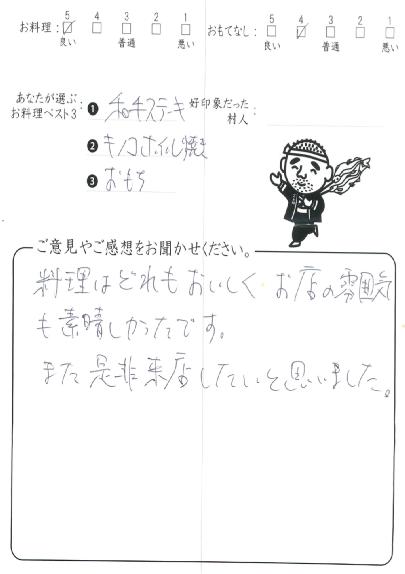 お料理: 5 4 3 2 1
良い 普通 悪い
おもてなし: 5 4 3 2 1
良い 普通 悪い
あなたが選ぶお料理ベスト3:
❶ 和牛ステーキ
❷ キノコホイル焼き
❸ おもち
好印象だった村人:
ご意見やご感想をお聞かせください。
料理はどれもおいしく お店の雰囲気
も素晴しかったです。
また是非来店したいと思いました。